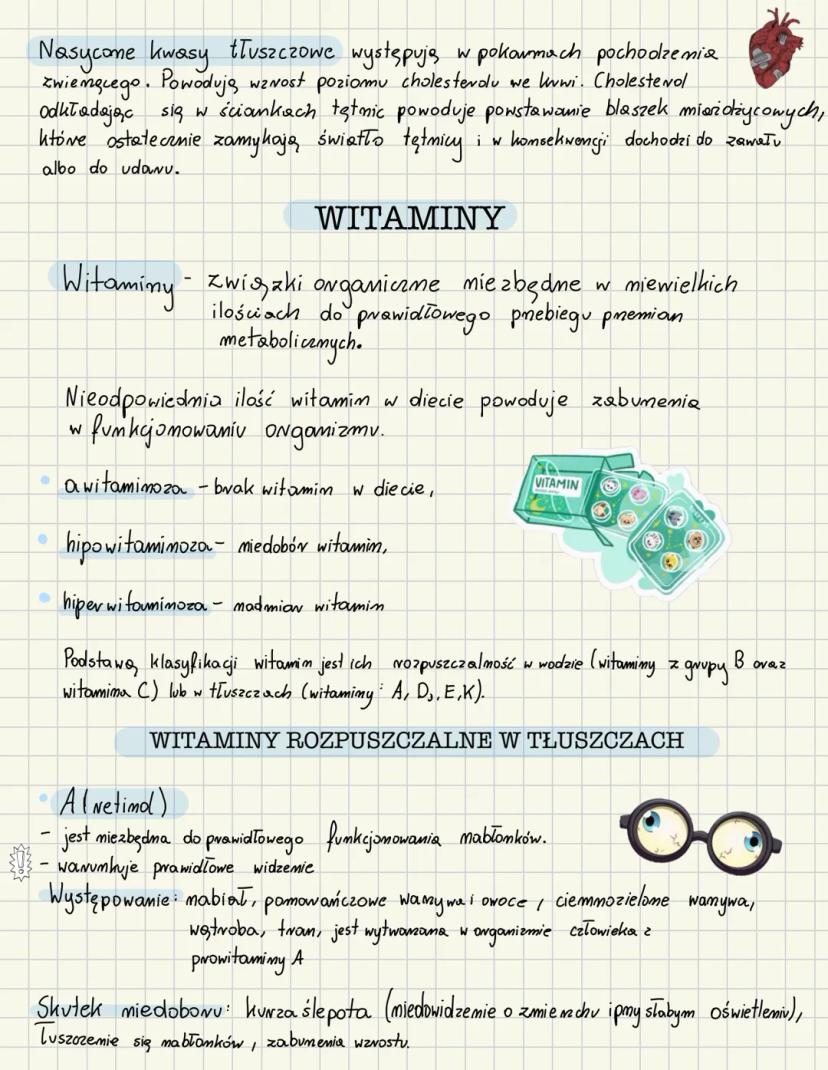 Nasycone kwasy tłuszczowe występują w pokarmach pochodzenia
zwierzęcego. Powodują wzrost poziomu cholesterolu we krwi. Cholesterol
odkładając się w ściankach tętnic powoduje powstawanie blaszek miażdżycowych,
które ostatecznie zamykają światło tętnicy i w konsekwencji dochodzi do zawału
albo do udaru.
WITAMINY
Witaminy - związki organiczne niezbędne w niewielkich
ilościach do prawidłowego przebiegu przemian
metabolicznych.
Nieodpowiednia ilość witamin w diecie powoduje zaburzenia
w funkcjonowaniu organizmu.
• awitaminoza - brak witamin w diecie,
VITAMIN
• hipowitaminoza - niedobór witamin,
• hiperwitaminoza - nadmiar witamin
Podstawą klasyfikacji witamin jest ich rozpuszczalność w wodzie (witaminy z grupy B oraz
witamina C) lub w tłuszczach (witaminy: A, D, E, K).
WITAMINY ROZPUSZCZALNE W TŁUSZCZACH
• A (retinol)
- jest niezbędna do prawidłowego funkcjonowania nabłonków.
- warunkuje prawidłowe widzenie
Występowanie: nabiał, pomarańczowe warzywa i owoce, ciemnozielone warzywa,
wątroba, tran, jest wytwarzana w organizmie człowieka z
prowitaminy A
Skutek niedoboru: kurza ślepota (niedowidzenie o zmierzchu i przy słabym oświetleniu),
łuszczenie się nabłonków, zaburzenia wzrostu.